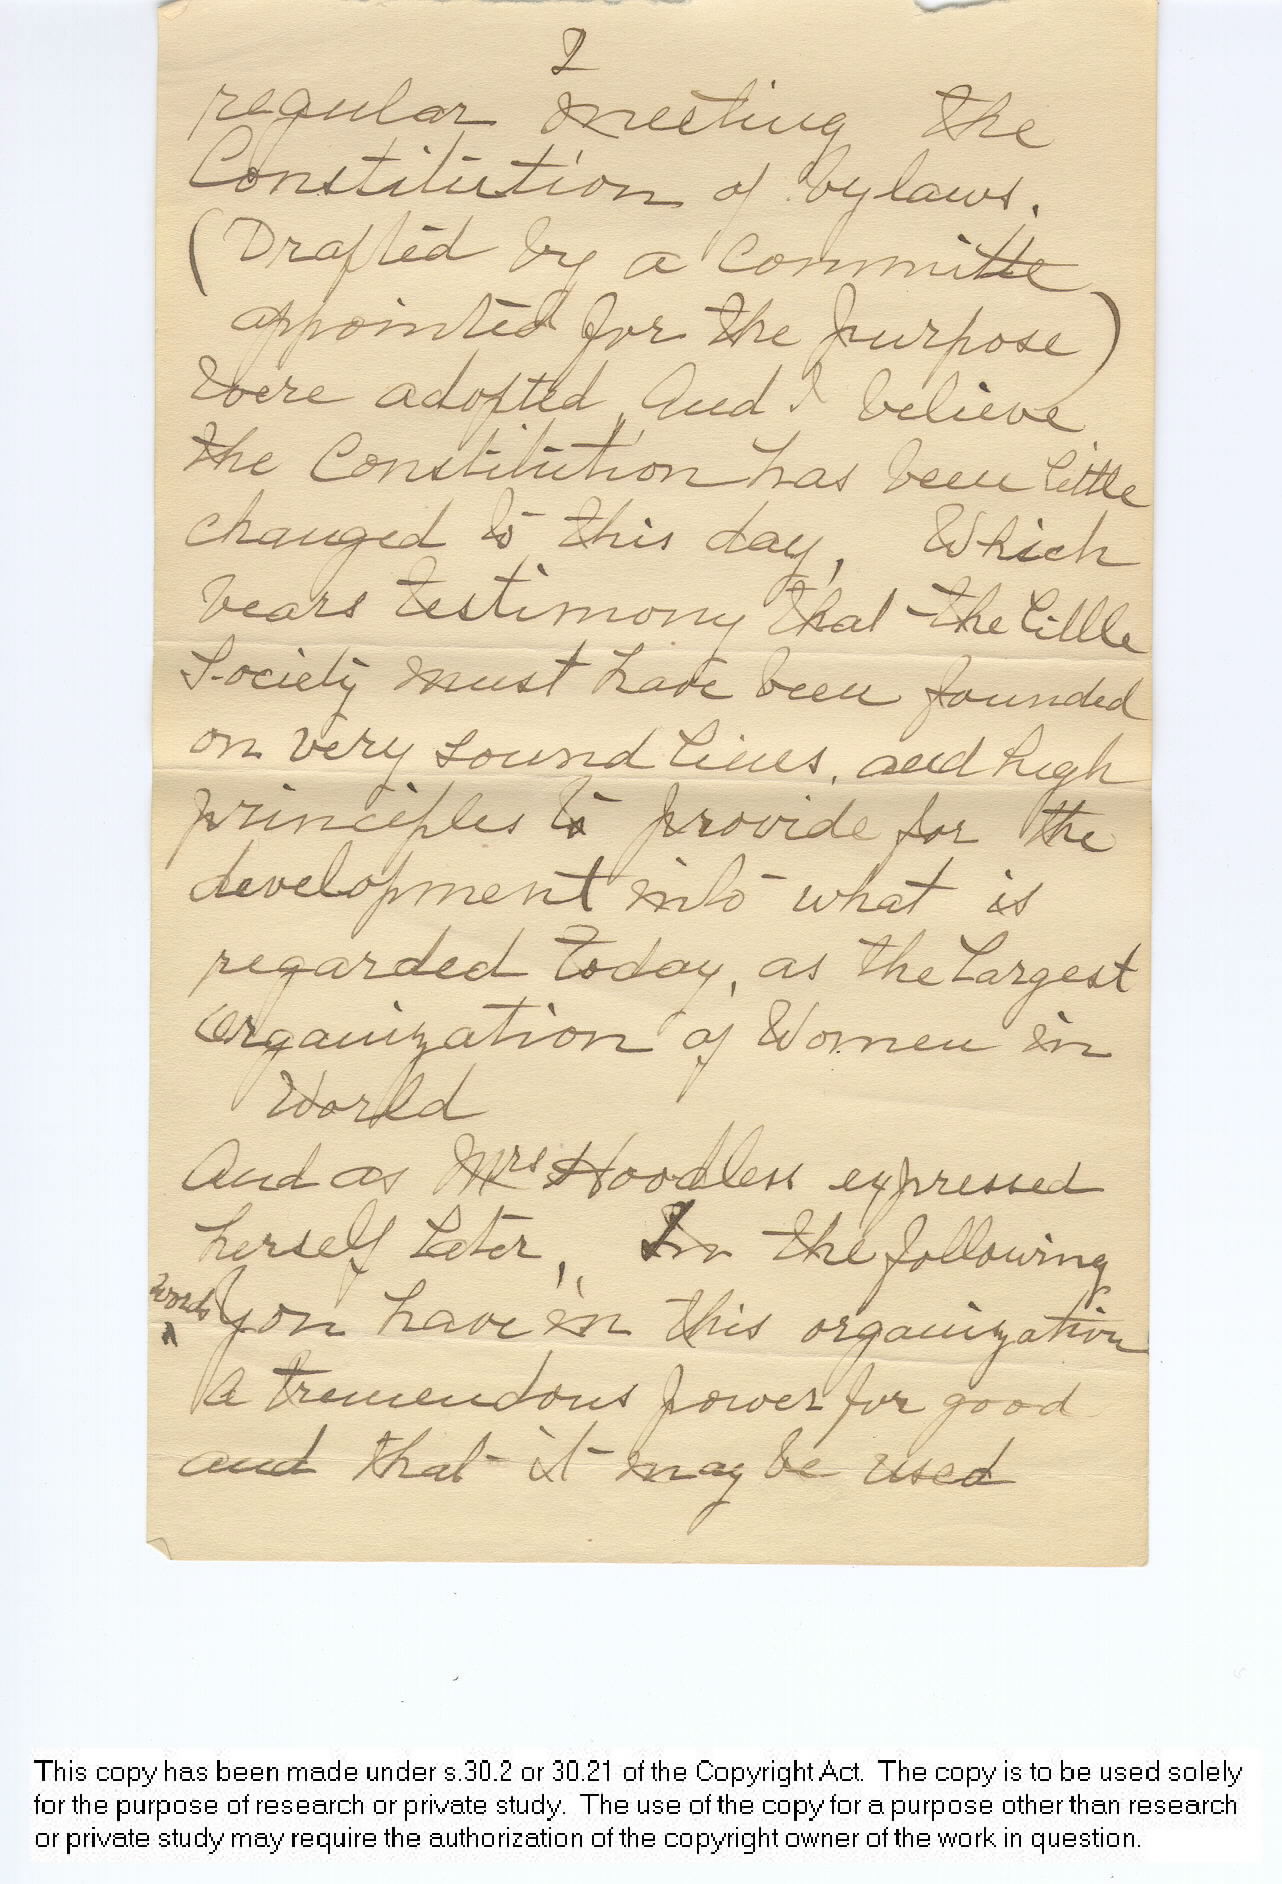 2
regular meeting the
Constitution of bylaws.
(Drafted by a committe
appointed for the purpose)
were adopted, And I believe
the Constitution has been little
changed to this day, Which
bears testimony that the little
Society must have been founded
on very sound lines, and high
principles to provide for the
development into what is
regarded today, as the Largest
Organization of Women in
World
And as Mrs Hoodless expressed
herself later, In the following
words
^ "You have in this organization
a tremendous power for good
and that it may be used
This copy has been made under s.30.2 or 30.21 of the Copyright Act. The copy is to be used solely
for the purpose of research or private study. The use of the copy for a purpose other than research
or private study may require the authorization of the copyright owner of the work in question.